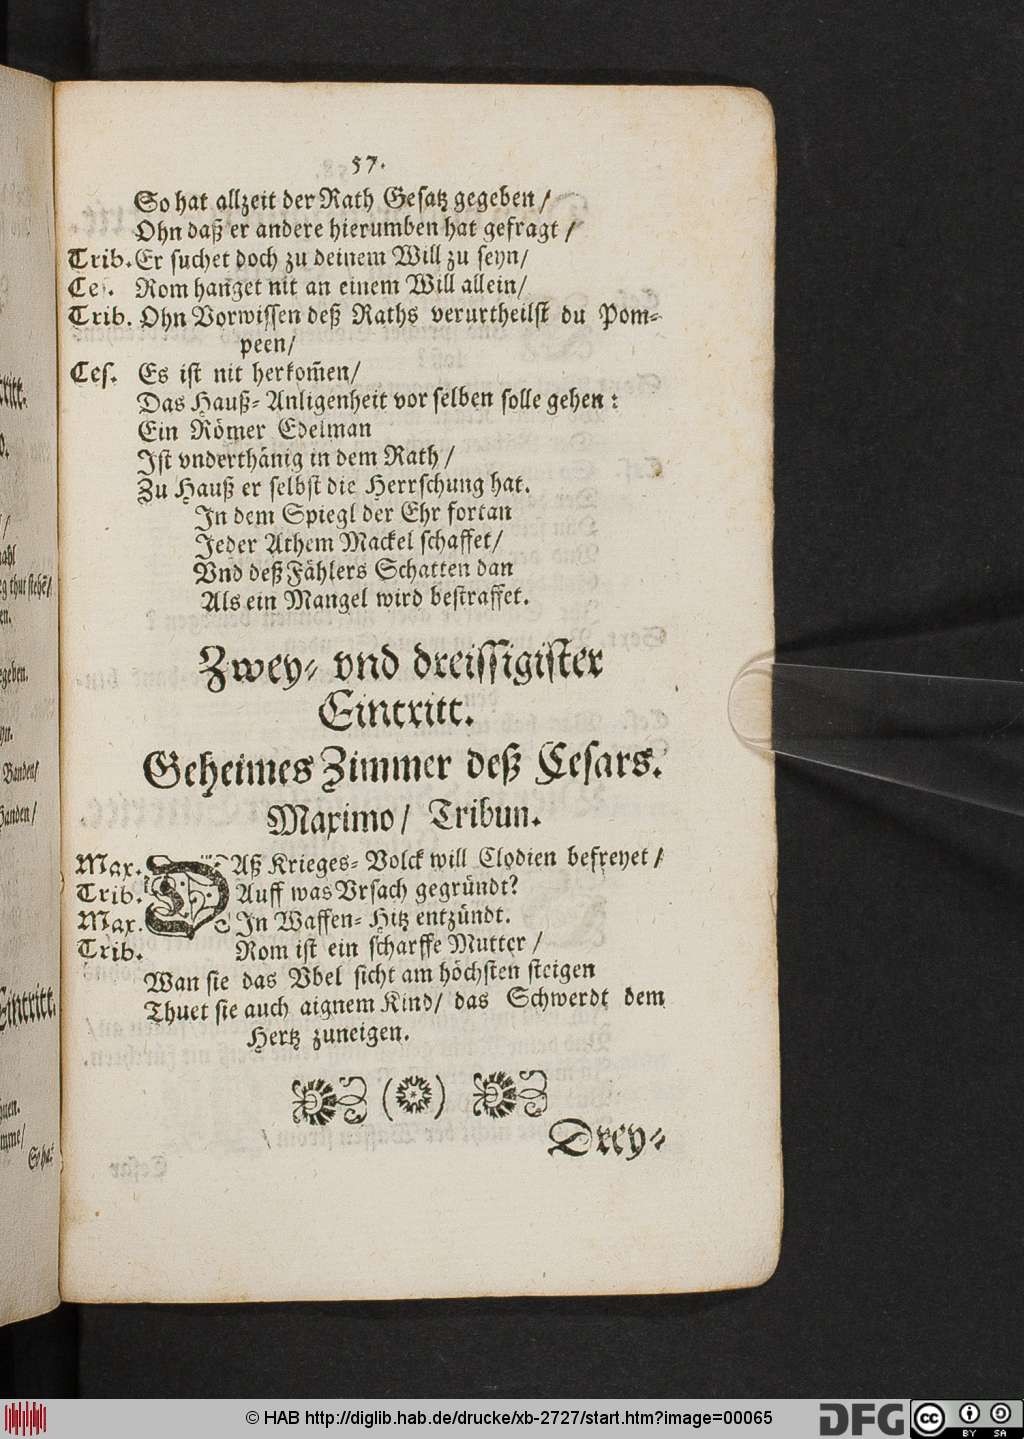 57.
So hat allzeit der Rath Gesatz gegeben /
Ohn daß er andere hierumben hat gefragt /
Trib. Er suchet doch zu deinem Will zu seyn/
Ces. Rom hanget nit an einem Will allein/
Trib. Ohn Vorwissen deß Raths verurtheilst du Pom-
peen/
Ces. Es ist nit herkom̃en/
Das Hauß-Anligenheit vor selben solle gehen:
Ein Römer Edelman
Ist vnderthänig in dem Rath /
Zu Hauß er selbst die Herrschung hat.
In dem Spiegl der Ehr fortan
Jeder Athem Mackel schaffet/
Vnd deß Fählers Schatten dan
Als ein Mangel wird bestraffet.
Zwey- vnd dreissigister
Eintritt.
Geheimes Zimmer deß Cesars.
Maximo/ Tribun.
Max. DAß Krieges-Volck will Clodien befreyet /
Trib. Auff was Vrsach gegründt?
Max. In Waffen-Hitz entzündt.
Trib. Rom ist ein scharffe Mutter /
Wan sie das Vbel sicht am höchsten steigen
Thuet sie auch aignem Kind/ das Schwerdt dem
Hertz zuneigen.
Drey-
© HAB http://diglib.hab.de/drucke/xb-2727/start.htm?image=00065
DFG
cc BY SA